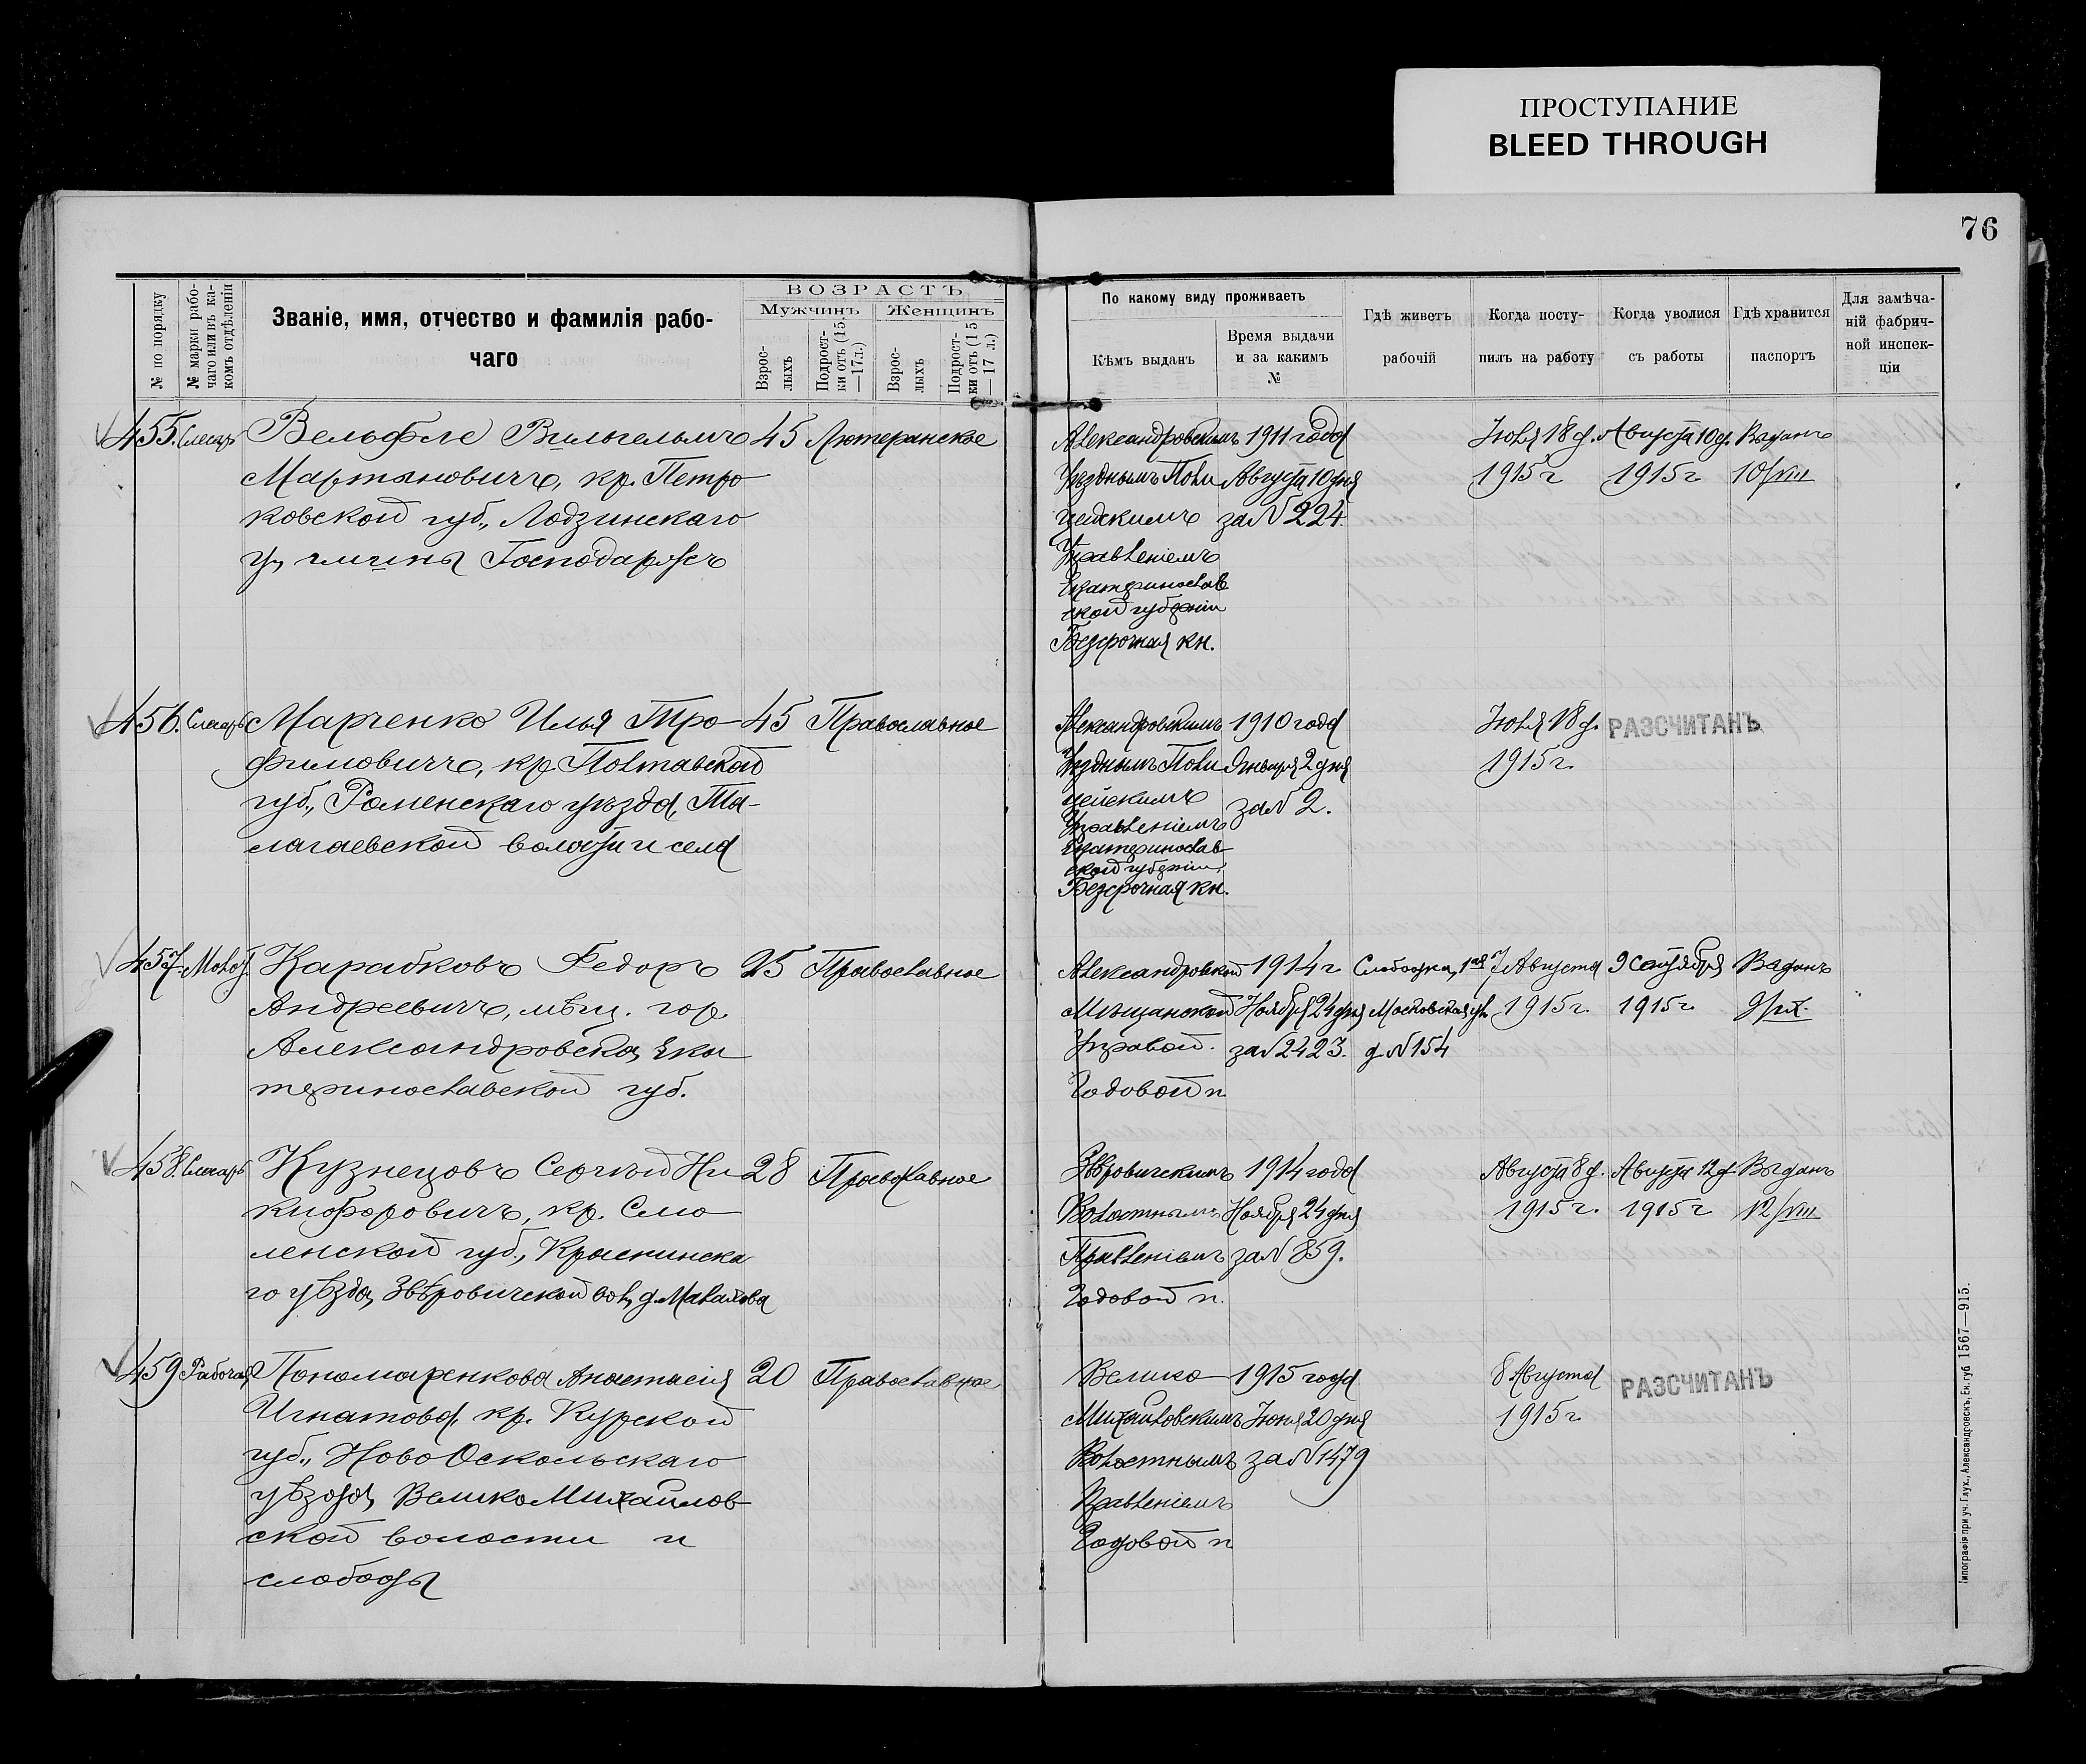 ПРОСТУПАНИЕ
BLEED THROUGH
76
№ по порядку
№ марки рабо-
чаго или въ ка-
комъ отдѣленіи
Званіе, имя, отчество и фамилія рабо-
чаго
ВОЗРАСТЪ
Мужчинъ
Женщинъ
Взрос-
лыхъ
Подрост-
ки отъ (15
—17 л.)
Взрос-
лыхъ
Подрост-
ки отъ (15
— 17 л.)
По какому виду проживаетъ
Кѣмъ выданъ
Время выдачи
и за какимъ
№
Гдѣ живетъ
рабочій
Когда посту-
пилъ на работу
Когда уволися
съ работы
Гдѣ хранится
паспортъ
Для замѣча-
ній фабрич-
ной инспек-
ціи
455. Слесарь Вельфле Вильгельмъ 45 Лютеранское
Мартыновичъ, кр. Петро
ковской губ., Лодзинскаго
у, гмины Господаржъ
Александровскимъ 1911 года Іюля 18 д. Августа 10 д. Выданъ
Уѣзднымъ Поли Августа 10 дня 1915 г 1915 г 10/VIII
цейскимъ за № 224.
Управленіемъ
Екатеринослав
ской губерніи
Безсрочная кн.
456. Слесарь Марченко Илья Тро 45 Православное
фимовичъ, кр. Полтавской
губ., Роменскаго уѣзда, Та-
лагаевской волости и села
Александровскимъ 1910 года Іюля 18 д. РАЗСЧИТАНЪ
Уѣзднымъ Поли Января 2 дня 1915 г.
цейскимъ за № 2.
Управленіемъ
Екатеринослав
ской губерніи
Безсрочная кн.
457. Молот. Карабковъ Федоръ 25 Православное
Андреевичъ, мѣщ. гор.
Александровска, Ека
теринославской губ.
Александровской 1914 г Слободка, 1ая 7 Августа 9 Сентября Выданъ
Мѣщанской Ноября 24 дня Московская ул. 1915 г. 1915 г 9/IX.
Управой. за № 2423. д. № 154
Годовой п
458. Слесарь Кузнецовъ Сергѣй Ни 28 Православное
кифоровичъ, кр. Смо
ленской губ., Краснинска
го уѣзда, Звѣровичской вол, д. Малахова
Звѣровичскимъ 1914 года Августа 8 д. Августа 12 д Выданъ
Волостнымъ Ноября 24 дня 1915 г. 1915 г 12/VIII
Правленіемъ за № 859.
Годовой п.
459 Рабочая Пономаренкова Анастасія 20 Православное
Игнатова, кр. Курской
губ., Ново Оскольскаго
уѣзда, Велико Михайлов
ской волости и
слободы
Велико 1915 года 8 Августа РАЗСЧИТАНЪ
Михайловскимъ Іюня 20 дня 1915 г.
Волостнымъ за № 1479
Правленіемъ
Годовой п
Типографія при уч. Глух., Александровскъ, Ек. губ 1567—915.